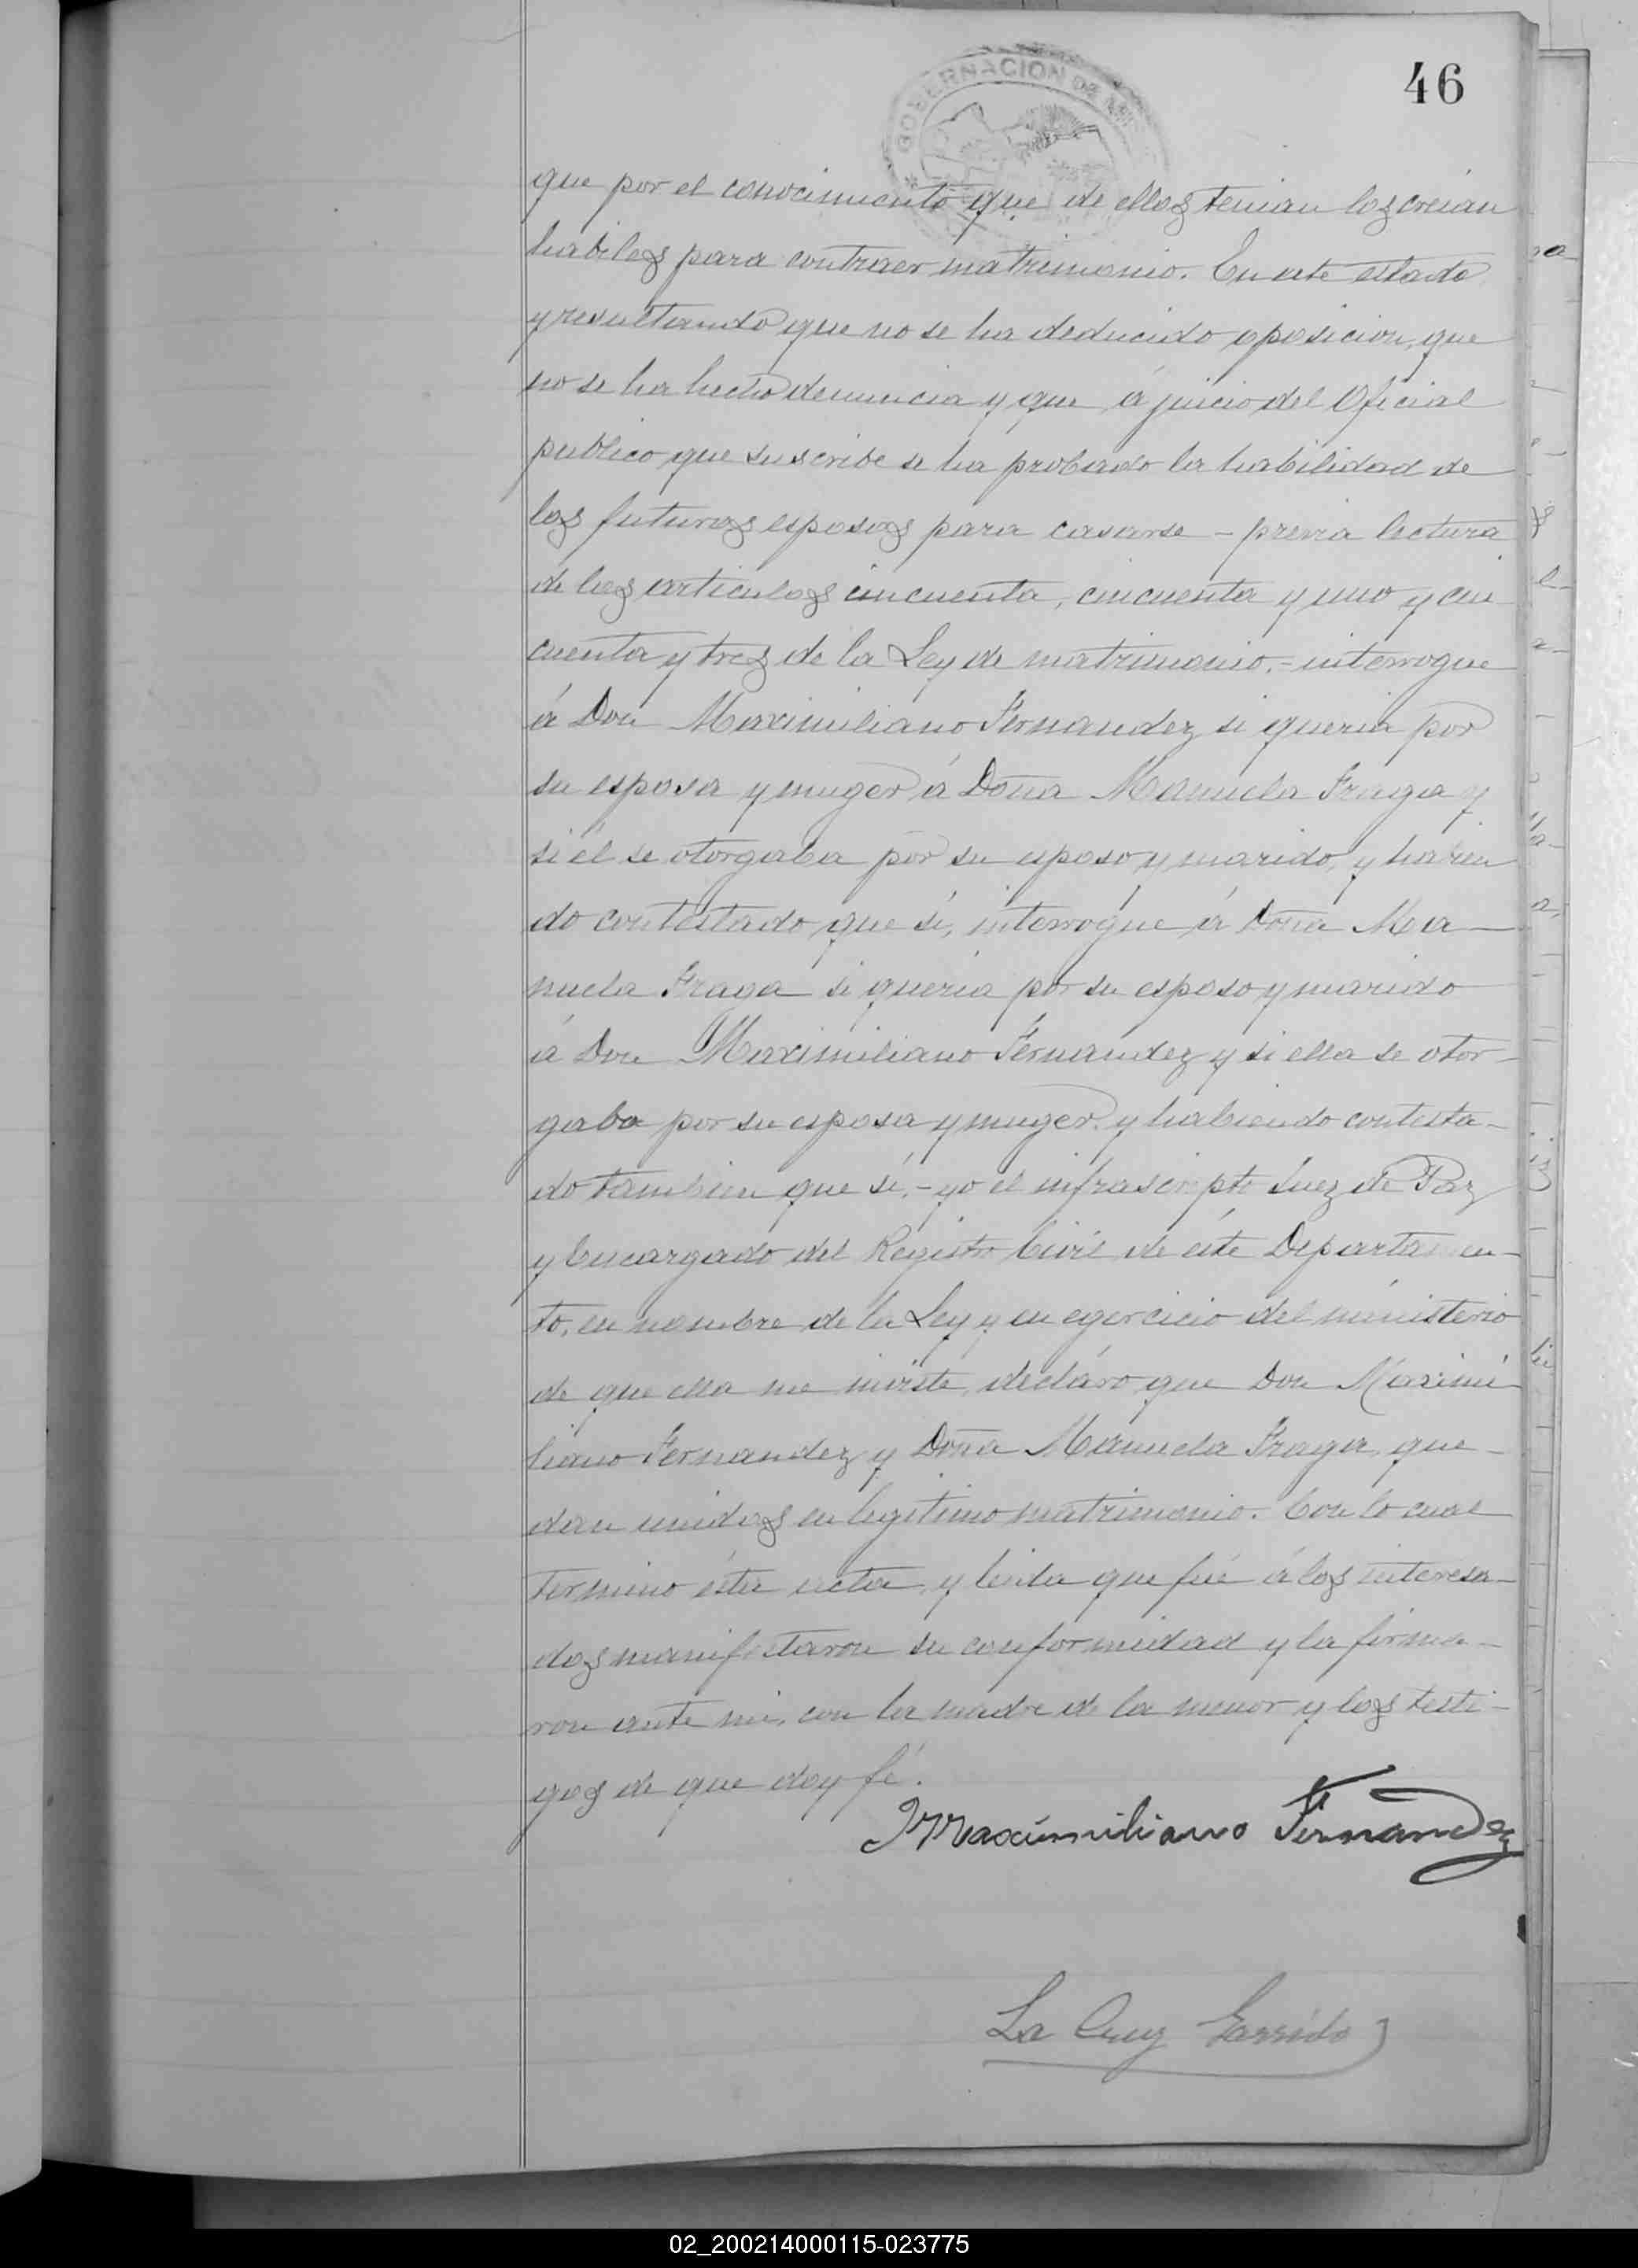 GOBERNACION DE
46
que por el conocimiento que de ellos tenian los creian
habiles para contraer matrimonio. En este estado
y resultando que no se ha deducido oposicion, que
no se ha hecho denuncia y que á juicio del Oficial
publico que suscribe se ha probado la habilidad de
los futuros esposos para casarse - previa lectura
de los articulos cincuenta, cincuenta y uno y cin
cuenta y tres de la Ley de matrimonio, - interrogue
á Don Maximiliano Fernandez si queria por
su esposa y muger á Doña Manuela Fraga y
si él se otorgaba por su esposo y marido, y habien
do contestado que si, interrogue á Doña Ma-
nuela Fraga si queria por su esposo y marido
á Don Maximiliano Fernandez y si ella se otor-
gaba por su esposa y muger, y habiendo contesta-
do tambien que sí, - yo el infrascripto Juez de Paz
y Encargado del Registro Civil de éste Departamen-
to, en nombre de la Ley y en egercicio del ministerio
de que ella me inviste, decláro que Don Maximi-
liano Fernandez y Doña Manuela Fraga, que-
dan unidos en legitimo matrimonio. Con lo cual
termino ésta acta, y leida que fué á los interesa-
dos manifestaron su conformidad y la firma-
ron ante mi, con la madre de la menor y los testi-
gos de que doy fé.
Maximiliano Fernandez
La Cruz Garrido
02_200214000115-023775